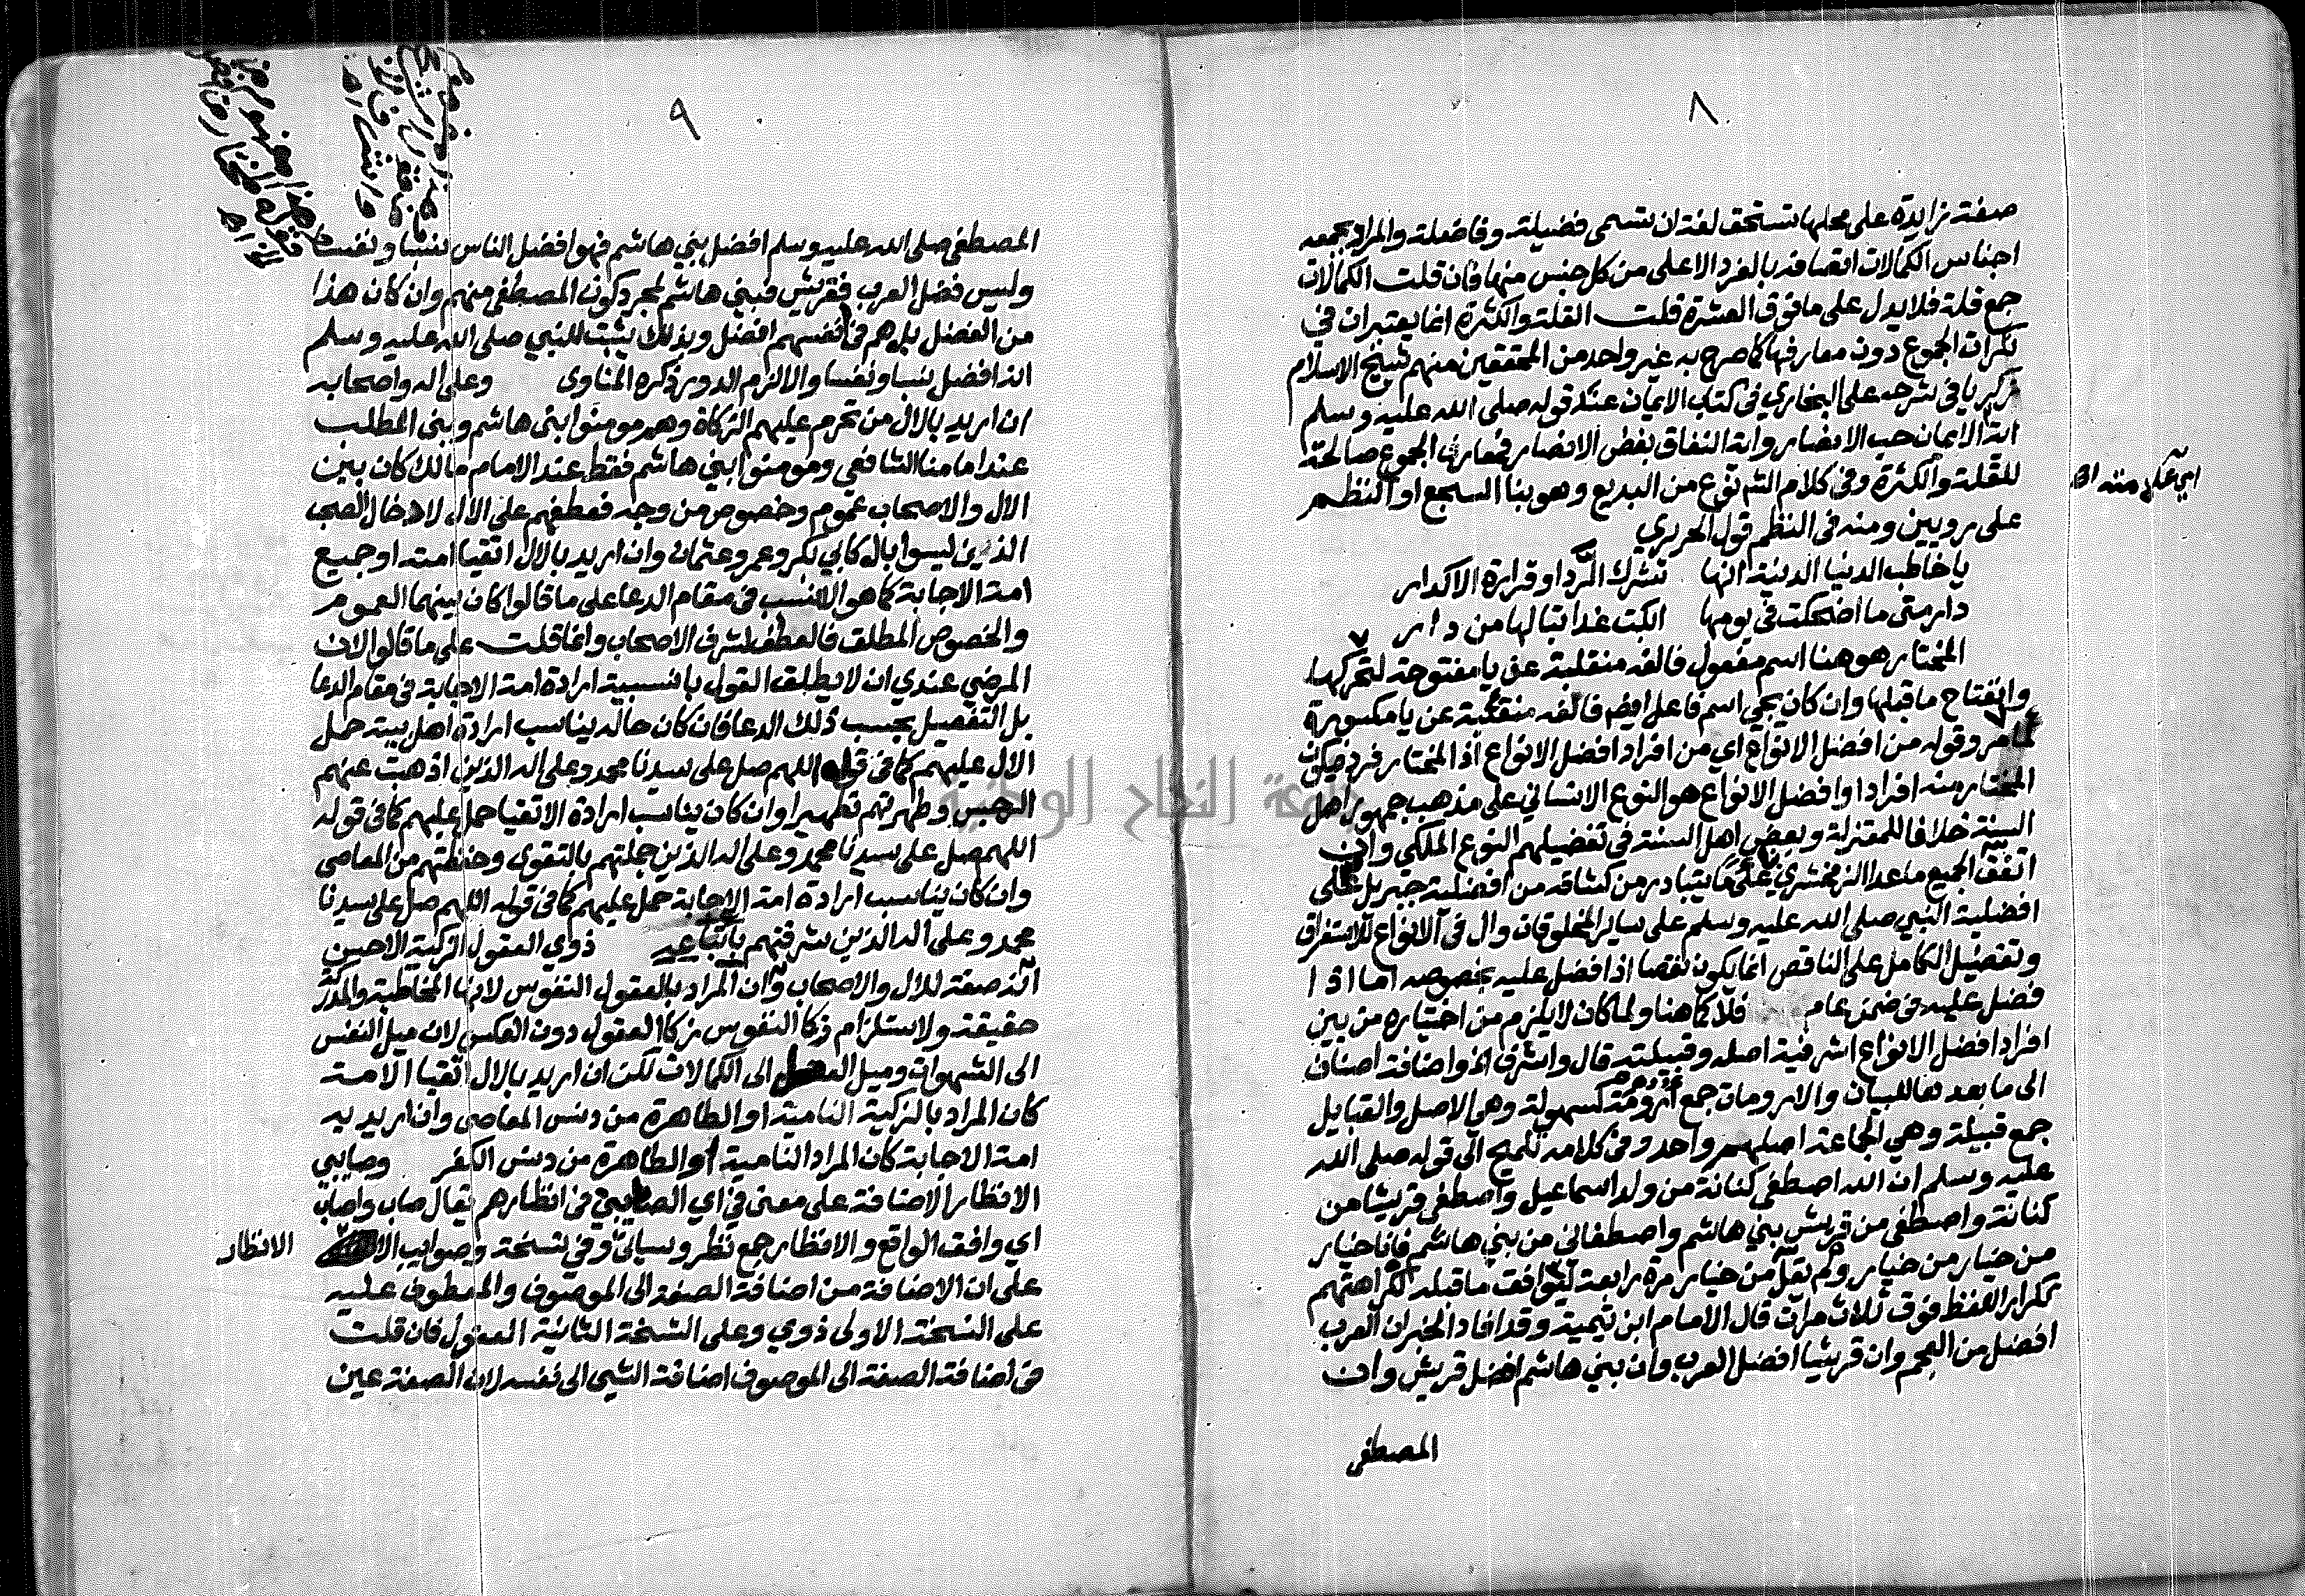 ٨
صفة زايدة على محلها تستحق لغة ان تسمى فضيلة وفاضلة والمراد بجمعه
اجناس الكمالات اتصافه بالفرد الاعلى من كل جنس منها فان قلت الكمالات
جمع قلة فلا يدل على ما فوق العشرة قلت القلة والكثرة انما يعتبران في
نكرات الجموع دون معارفها كما صرح به غير واحد من المحققين منهم شيخ الاسلام
زكريا في شرحه على البخاري في كتاب الايمان عند قوله صلى الله عليه وسلم
اية الايمان حب الانصار واية النفاق بغض الانصار فمعارف الجموع صالحة
للقلة والكثرة وفي كلام الش نوع من البديع وهو بنا السجع او النظم
على رويين ومنه في النظم قول الحريري
يا خاطب الدنيا الدنية انها شرك الردا وقرارة الاكدار
دار متى ما اضحكت في يومها ابكت غدا تبا لها من دار
المختار هو هنا اسم مفعول فالفه منقلبة عن يا مفتوحة لتحركها
وانفتاح ما قبلها وان كان يجي اسم فاعل ايض فالفه منقلبة عن يا مكسورة
لما مر وقوله من افضل الانواع اي من افراد افضل الانواع اذ المختار فرد فيكون
المختار منه افرادا وافضل الانواع هو النوع الانساني على مذهب جمهور اهل
السنة خلافا للمعتزلة وبعض اهل السنة في تفضيلهم النوع الملكي وان
اتفق الجميع ما عدا الزمخشري على ما يتبادر من كشافه من افضلية جبريل على
افضلية النبي صلى الله عليه وسلم على ساير المخلوقات وال في الانواع للاستغراق
وتفضيل الكامل على الناقص انما يكون نقصا اذا فضل عليه بخصوصه اما اذا
فضل عليه في ضمن عام فلا كما هنا ولما كان لا يلزم من اختياره من بين
افراد افضل الانواع اشرفية اصله وقبيلته قال واشرف الخ واضافة اصناف
الى ما بعدها للبيان والارومات جمع ارومة كسهولة وهي الاصل والقبايل
جمع قبيلة وهي الجماعة اصلهم واحد وفي كلامه تلميح الى قوله صلى الله
عليه وسلم ان الله اصطفى كنانة من ولد اسماعيل واصطفى قريشا من
كنانة واصطفى من قريش بني هاشم واصطفاني من بني هاشم فانا خيار
من خيار من خيار ولم يقل من خيار مرة رابعة ليوافق ما قبله لكراهتهم
تكرار اللفظ فوق ثلاث مرات قال الامام ابن تيمية وقد افاد الخبر ان العرب
افضل من العجم وان قريشا افضل العرب وان بني هاشم افضل قريش وان
المصطفى
٩
المصطفى صلى الله عليه وسلم افضل بني هاشم فهو افضل الناس نسبا ونفسا
وليس فضل العرب فقريش فبني هاشم لمجرد كون المصطفى منهم وان كان هذا
من الفضل بل هم في انفسهم افضل وبذلك يثبت للنبي صلى الله عليه وسلم
انه افضل نسبا ونفسا والا لزم الدور ذكره المناوى وعلى اله واصحابه
ان اريد بالال من تحرم عليهم الزكاة وهم مومنوا بني هاشم وبنى المطلب
عند امامنا الشافعي ومومنوا بني هاشم فقط عند الامام مالك كان بين
الال والاصحاب عموم وخصوص من وجه فعطفهم على الال لادخال الصحب
الذين ليسوا بال كابي بكر وعمر وعثمان وان اريد بالال اتقيا امته او جميع
امة الاجابة كما هو الانسب في مقام الدعا على ما قالوا كان بينهما العموم
والخصوص المطلق فالعطف لشرف الاصحاب وانما قلت على ما قالوا لان
المرضي عندي ان لا يطلق القول بانسبية ارادة امة الاجابة في مقام الدعا
بل التفصيل بحسب ذلك الدعا فان كان حاله يناسب ارادة اهل بيته حمل
الال عليهم كما في قوله اللهم صل على سيدنا محمد وعلى اله الذين اذهبت عنهم
الرجس وطهرتهم تطهيرا وان كان يناسب ارادة الاتقيا حمل عليهم كما في قوله
اللهم صل على سيدنا محمد وعلى اله الذين جملتهم بالتقوى وحفظتهم من المعاصى
وان كان يناسب ارادة امة الاجابة حمل عليهم كما في قوله اللهم صل على سيدنا
محمد وعلى اله الذين شرفتهم باتباعه ذوي العقول الزكية الاحسن
انه صفة للال والاصحاب وان المراد بالعقول النفوس لانها المخاطبة والمدركة
حقيقة ولاستلزام زكا النفوس زكا العقول دون العكس لان ميل النفس
الى الشهوات وميل العقل الى الكمالات لكن ان اريد بالال اتقيا الامة
كان المراد بالزكية النامية او الطاهرة من دنس المعاصى وان اريد به
امة الاجابة كان المراد النامية او الطاهرة من دنس الكفر وصايبي
الانظار الاضافة على معنى في اي الصايبين في انظارهم يقال صاب واصاب
اي وافق الواقع والانظار جمع نظر وسياتي وفي نسخة وصوايب
الانظار
على ان الاضافة من اضافة الصفة الى الموصوف والمعطوف عليه
على النسخة الاولى ذوي وعلى النسخة الثانية العقول فان قلت
في اضافة الصفة الى الموصوف اضافة الشي الى نفسه لان الصفة عين
جامعة النجاح الوطنية